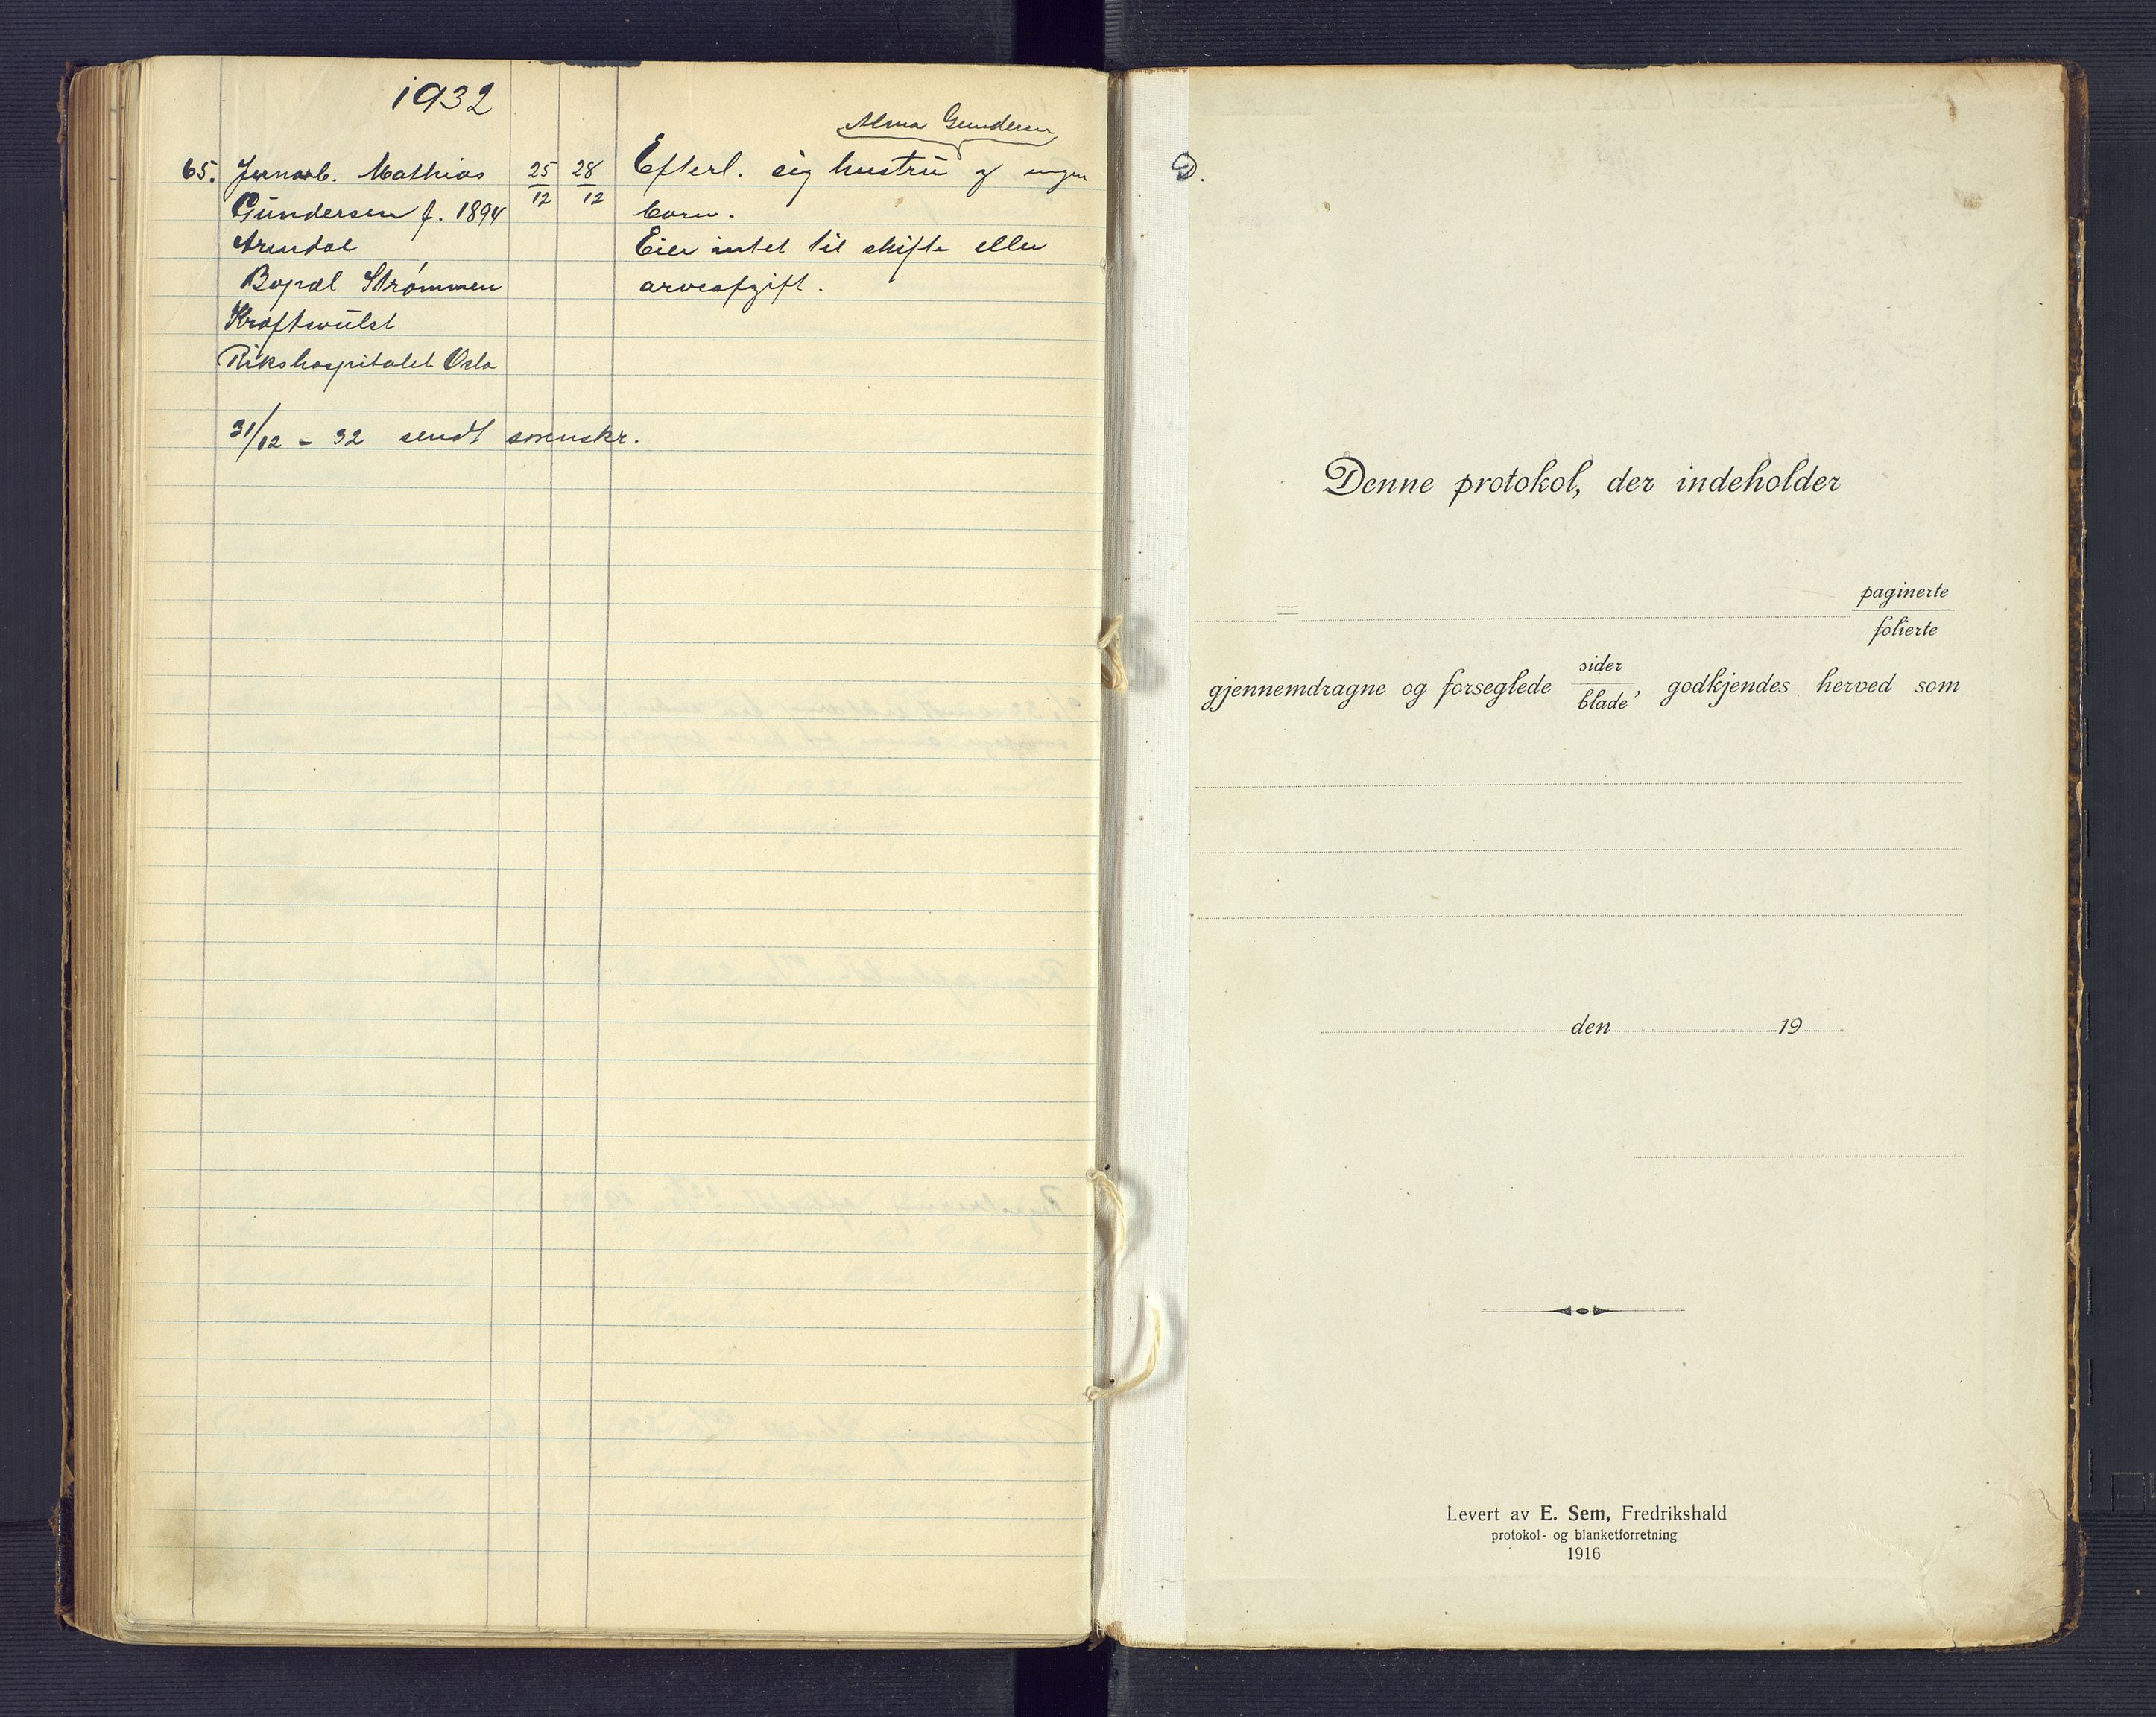 1932
Alma Gundersen
65. Jernarb. Mathias 25/12 28/12 Efterl. sig hustru og ingen
Gundersen f. 1894 barn.
Arendal Eier intet til skifte eller
Bopæl Strømmen arveafgift.
Kræftsvulst
Rikshospitalet Oslo
31/12 - 32 sendt sorenskr.
Denne protokol, der indeholder
= paginerte
folierte
gjennemdragne og forseglede sider
blade, godkjendes herved som
den 19
Levert av E. Sem, Fredrikshald
protokol- og blanketforretning
1916